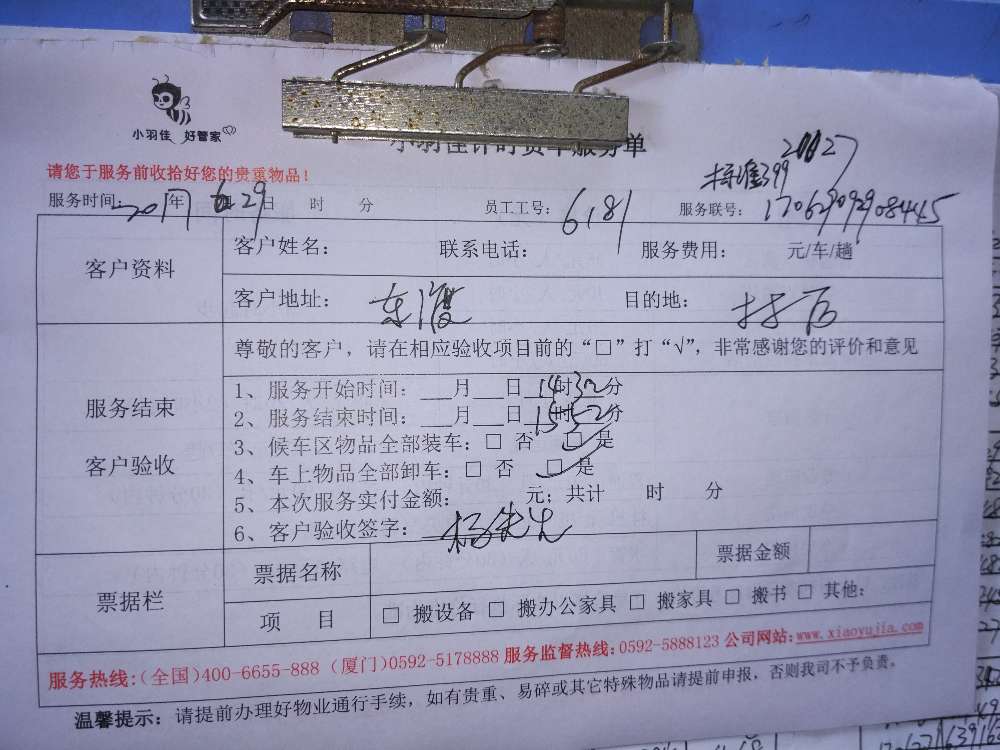 小羽佳 好管家
小羽佳计时货车服务单
请您于服务前收拾好您的贵重物品！
标准399
服务时间： 年 29日 时 分 员工工号：6181 服务联号：170629092908445
客户资料
客户姓名： 联系电话： 服务费用： 元/车/趟
客户地址：东渡 目的地：
尊敬的客户，请在相应验收项目前的“□”打“√”，非常感谢您的评价和意见
服务结束
客户验收
1、服务开始时间：___月___日14时32分
2、服务结束时间：___月___日15时52分
3、候车区物品全部装车：□ 否 ☑ 是
4、车上物品全部卸车：□ 否 ☑ 是
5、本次服务实付金额： 元；共计 时 分
6、客户验收签字：杨先生
票据栏
票据名称 票据金额
项 目 □ 搬设备 □ 搬办公家具 □ 搬家具 □ 搬书 □ 其他：
服务热线：（全国）400-6655-888（厦门）0592-5178888 服务监督热线：0592-5888123 公司网站：www.xiaoyujia.com
温馨提示：请提前办理好物业通行手续，如有贵重、易碎或其它特殊物品请提前申报，否则我司不予负责。